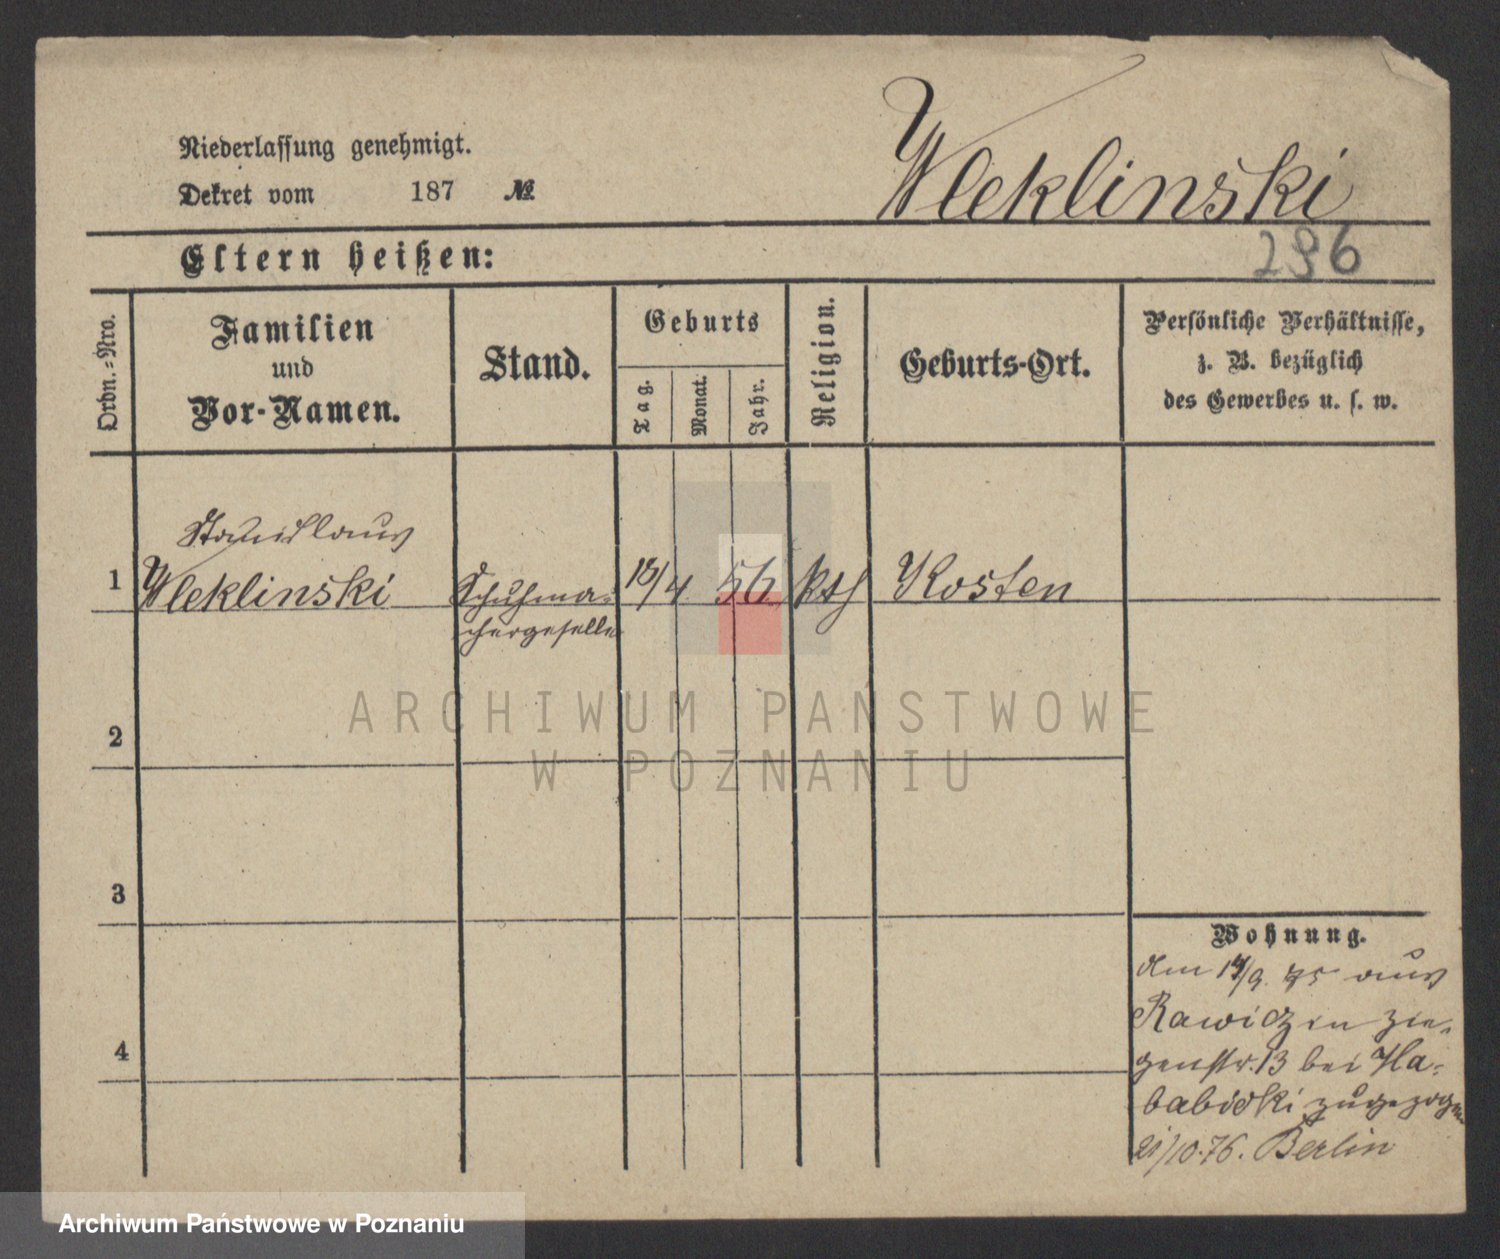 Niederlassung genehmigt.
Dekret vom 187 №
Weklinski
Eltern heißen:
296
Ordn.-Nro.
Familien
und
Vor-Namen.
Stand.
Geburts
Tag.
Monat.
Jahr.
Religion.
Geburts-Ort.
Persönliche Verhältnisse,
z. B. bezüglich
des Gewerbes u. s. w.
Stanislaus
1 Weklinski Schuhma- 18/4 56 kth Kosten
chergeselle
ARCHIWUM PAŃSTWOWE
W POZNANIU
2
3
4
Wohnung.
Am 14/9. 75 aus
Rawicz in Zie-
genstr. 13 bei
zugezogen
21/10.76. Berlin
Archiwum Państwowe w Poznaniu